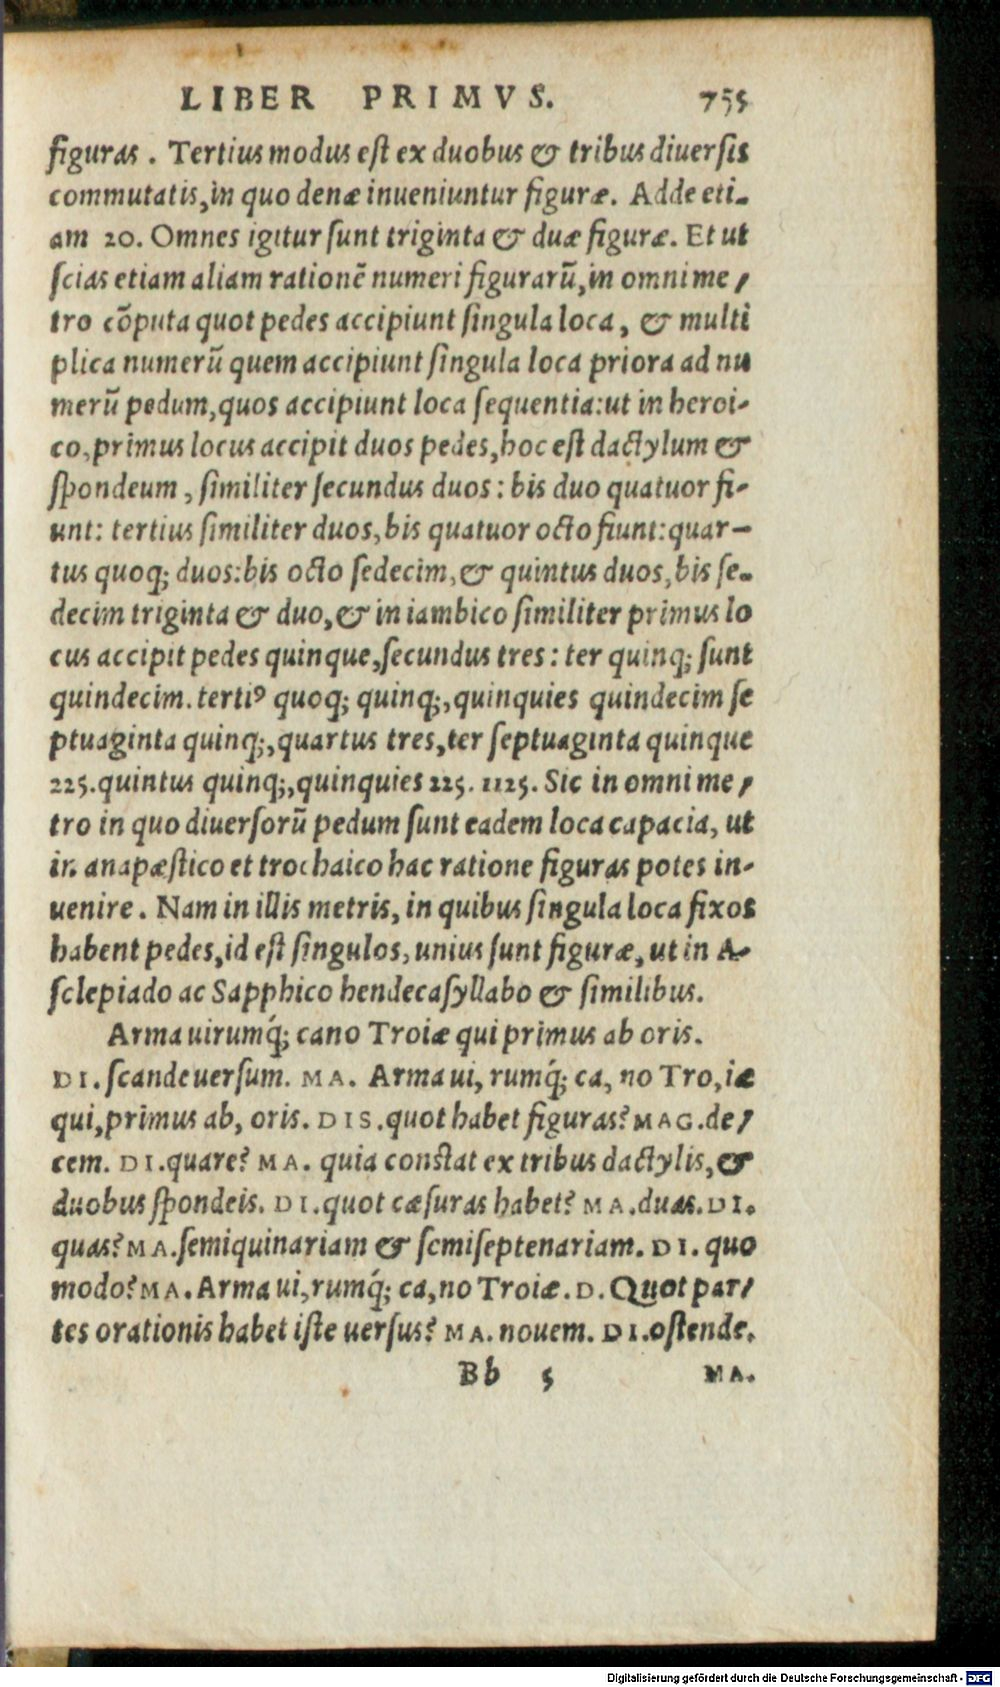 LIBER PRIMVS. 755
figuras. Tertius modus eſt ex duobus & tribus diuerſis
commutatis, in quo denæ inueniuntur figuræ. Adde eti-
am 20. Omnes igitur ſunt triginta & duæ figuræ. Et ut
ſcias etiam aliam rationē numeri figurarū, in omni me-
tro cōputa quot pedes accipiunt ſingula loca, & multi
plica numerū quem accipiunt ſingula loca priora ad nu
merū pedum, quos accipiunt loca ſequentia: ut in heroi-
co, primus locus accipit duos pedes, hoc eſt dactylum &
ſpondeum, ſimiliter ſecundus duos: bis duo quatuor fi-
unt: tertius ſimiliter duos, bis quatuor octo fiunt: quar-
tus quoq; duos: bis octo ſedecim, & quintus duos, bis ſe-
decim triginta & duo, & in iambico ſimiliter primus lo
cus accipit pedes quinque, ſecundus tres: ter quinq; ſunt
quindecim. tertiꝰ quoq; quinq;, quinquies quindecim ſe
ptuaginta quinq;, quartus tres, ter ſeptuaginta quinque
225. quintus quinq;, quinquies 225. 1125. Sic in omni me-
tro in quo diuerſorū pedum ſunt eadem loca capacia, ut
in anapæſtico et trochaico hac ratione figuras potes in-
uenire. Nam in illis metris, in quibus ſingula loca fixos
habent pedes, id eſt ſingulos, unius ſunt figuræ, ut in A-
ſclepiado ac Sapphico hendecaſyllabo & ſimilibus.
Arma uirumq́; cano Troiæ qui primus ab oris.
DI. ſcande uerſum. MA. Arma ui, rumq́; ca, no Tro, iæ
qui, primus ab, oris. DIS. quot habet figuras? MAG. de-
cem. DI. quare? MA. quia conſtat ex tribus dactylis, &
duobus ſpondeis. DI. quot cæſuras habet? MA. duas. DI.
quas? MA. ſemiquinariam & ſemiſeptenariam. DI. quo
modo? MA. Arma ui, rumq́; ca, no Troiæ. D. Quot par-
tes orationis habet iſte uerſus? MA. nouem. DI. oſtende.
Bb 5 MA.
Digitalisierung gefördert durch die Deutsche Forschungsgemeinschaft - DFG